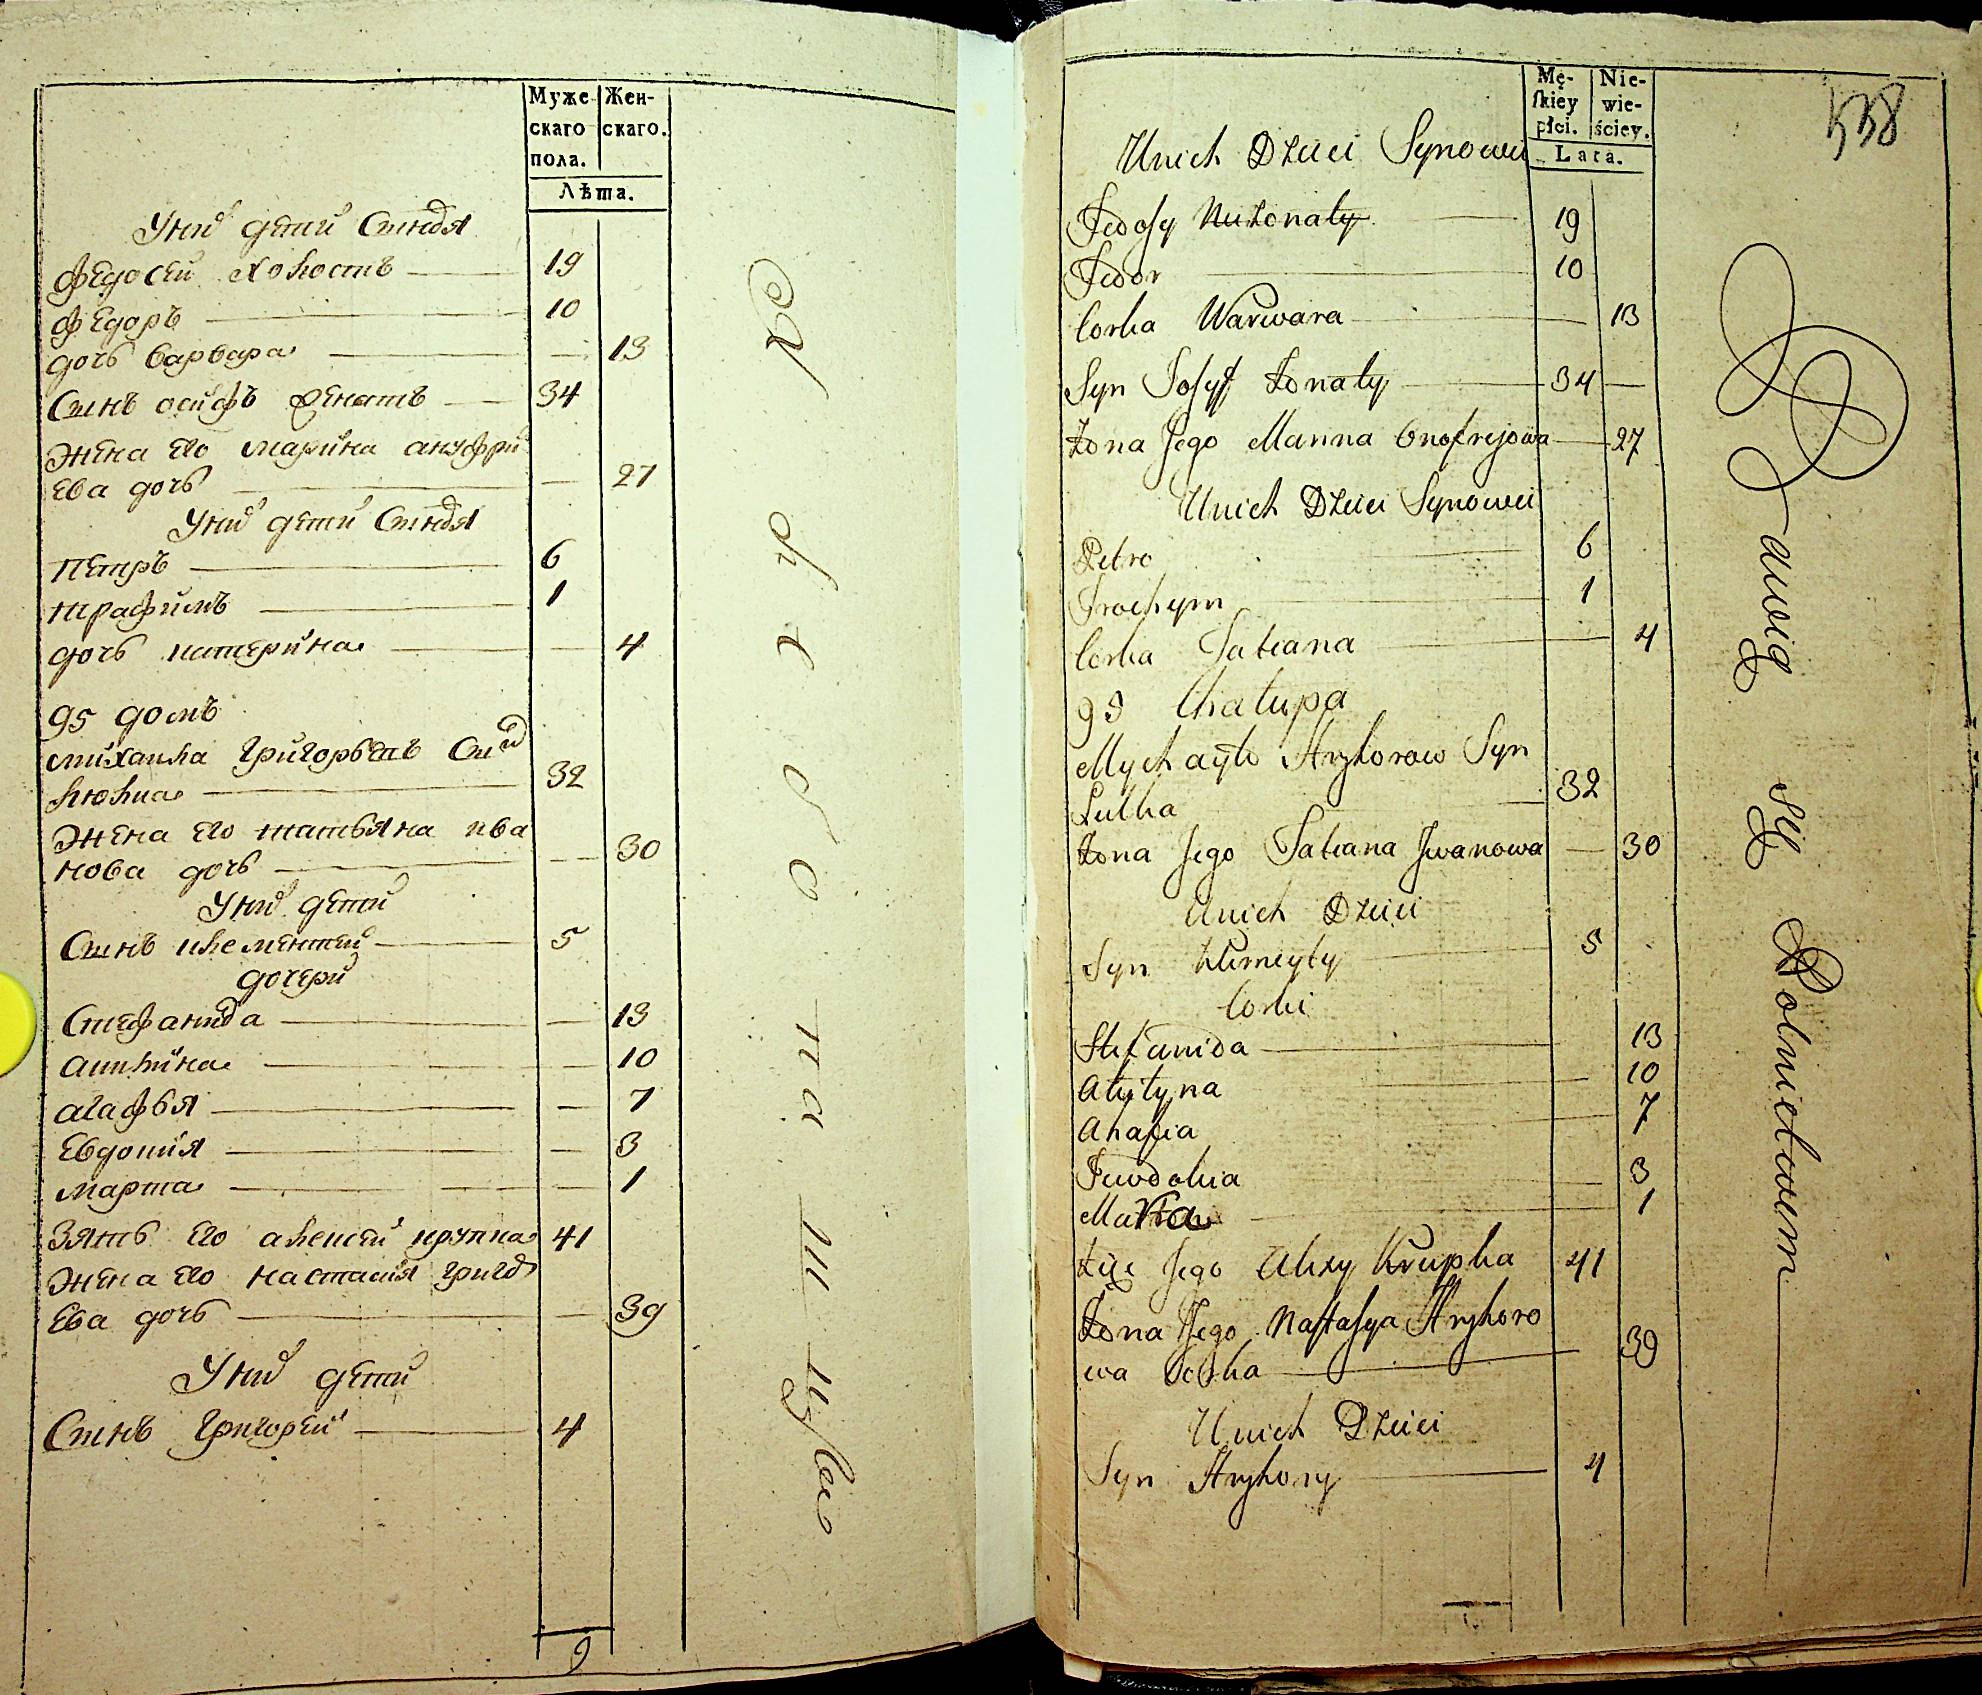 Муже
скаго
пола.
Жен-
скаго.
Лѣта.
У них дети Сыновя
Федосей холость 19
Федоръ 10
дочь варвара 13
Сынъ осифъ женатъ 34
Жена его марина ануфри
ева дочь 27
У них дети Сыновя
Петръ 6
трафимъ 1
дочь катерина 4
95 домъ
михаила григорьевъ Сын
люлка 32
Жена его татьяна ива
нова дочь 30
У них дети
Сынъ клементей 5
дочери
Стефанида 13
акилина 10
агафья 7
Евдокия 3
марта 1
Зять его алексей крупка 41
Жена его настасия григо
ева дочь 39
У них дети
Сынъ григорей 4
9
Mę-
ſkiey
płci.
Nie-
wie-
ściey.
Lata.
538
Unich Dzieci Synowie
Fedoſy Nieżonaty 19
Fedor 10
Corka Warwara 13
Syn Joſyf żonaty 34
żona Jego Maryna Onofrejowa 27
Unich Dzieci Synowie
Petro 6
Trochym 1
Corka Tatiana 4
95 Chałupa
Mychayło Hryhorow Syn
Lulka 32
żona Jego Tatiana Jwanowa 30
Unich Dzieci
Syn Klimeyty 5
Corki
Stefanida 13
Akilyna 10
Ahafia 7
Jewdokia 3
Marta 1
Zięć Jego Alexy Krupka 41
Żona Jego Naſtaſya Hryhoro
wa Corka 39
Unich Dzieci
Syn Hryhory 4
Bawią się Rolnictwem